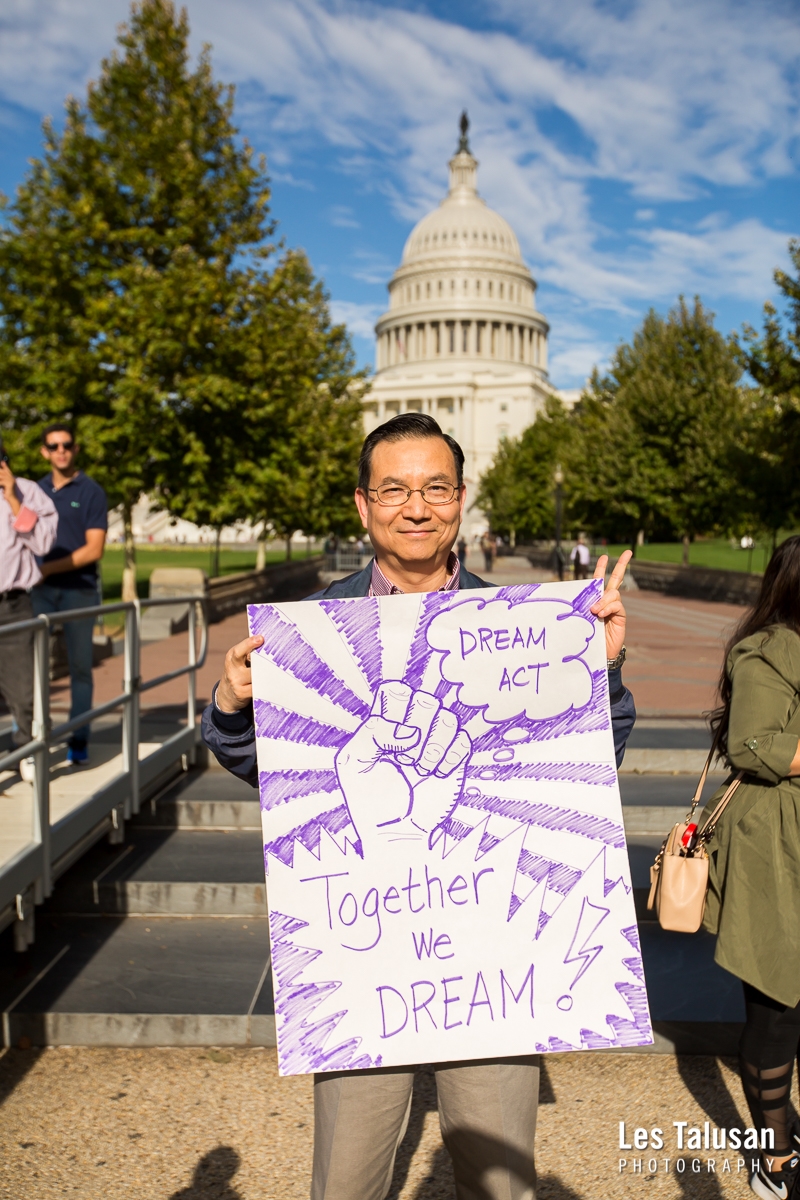 DREAM
ACT
Together
we
DREAM!
Les Talusan
PHOTOGRAPHY